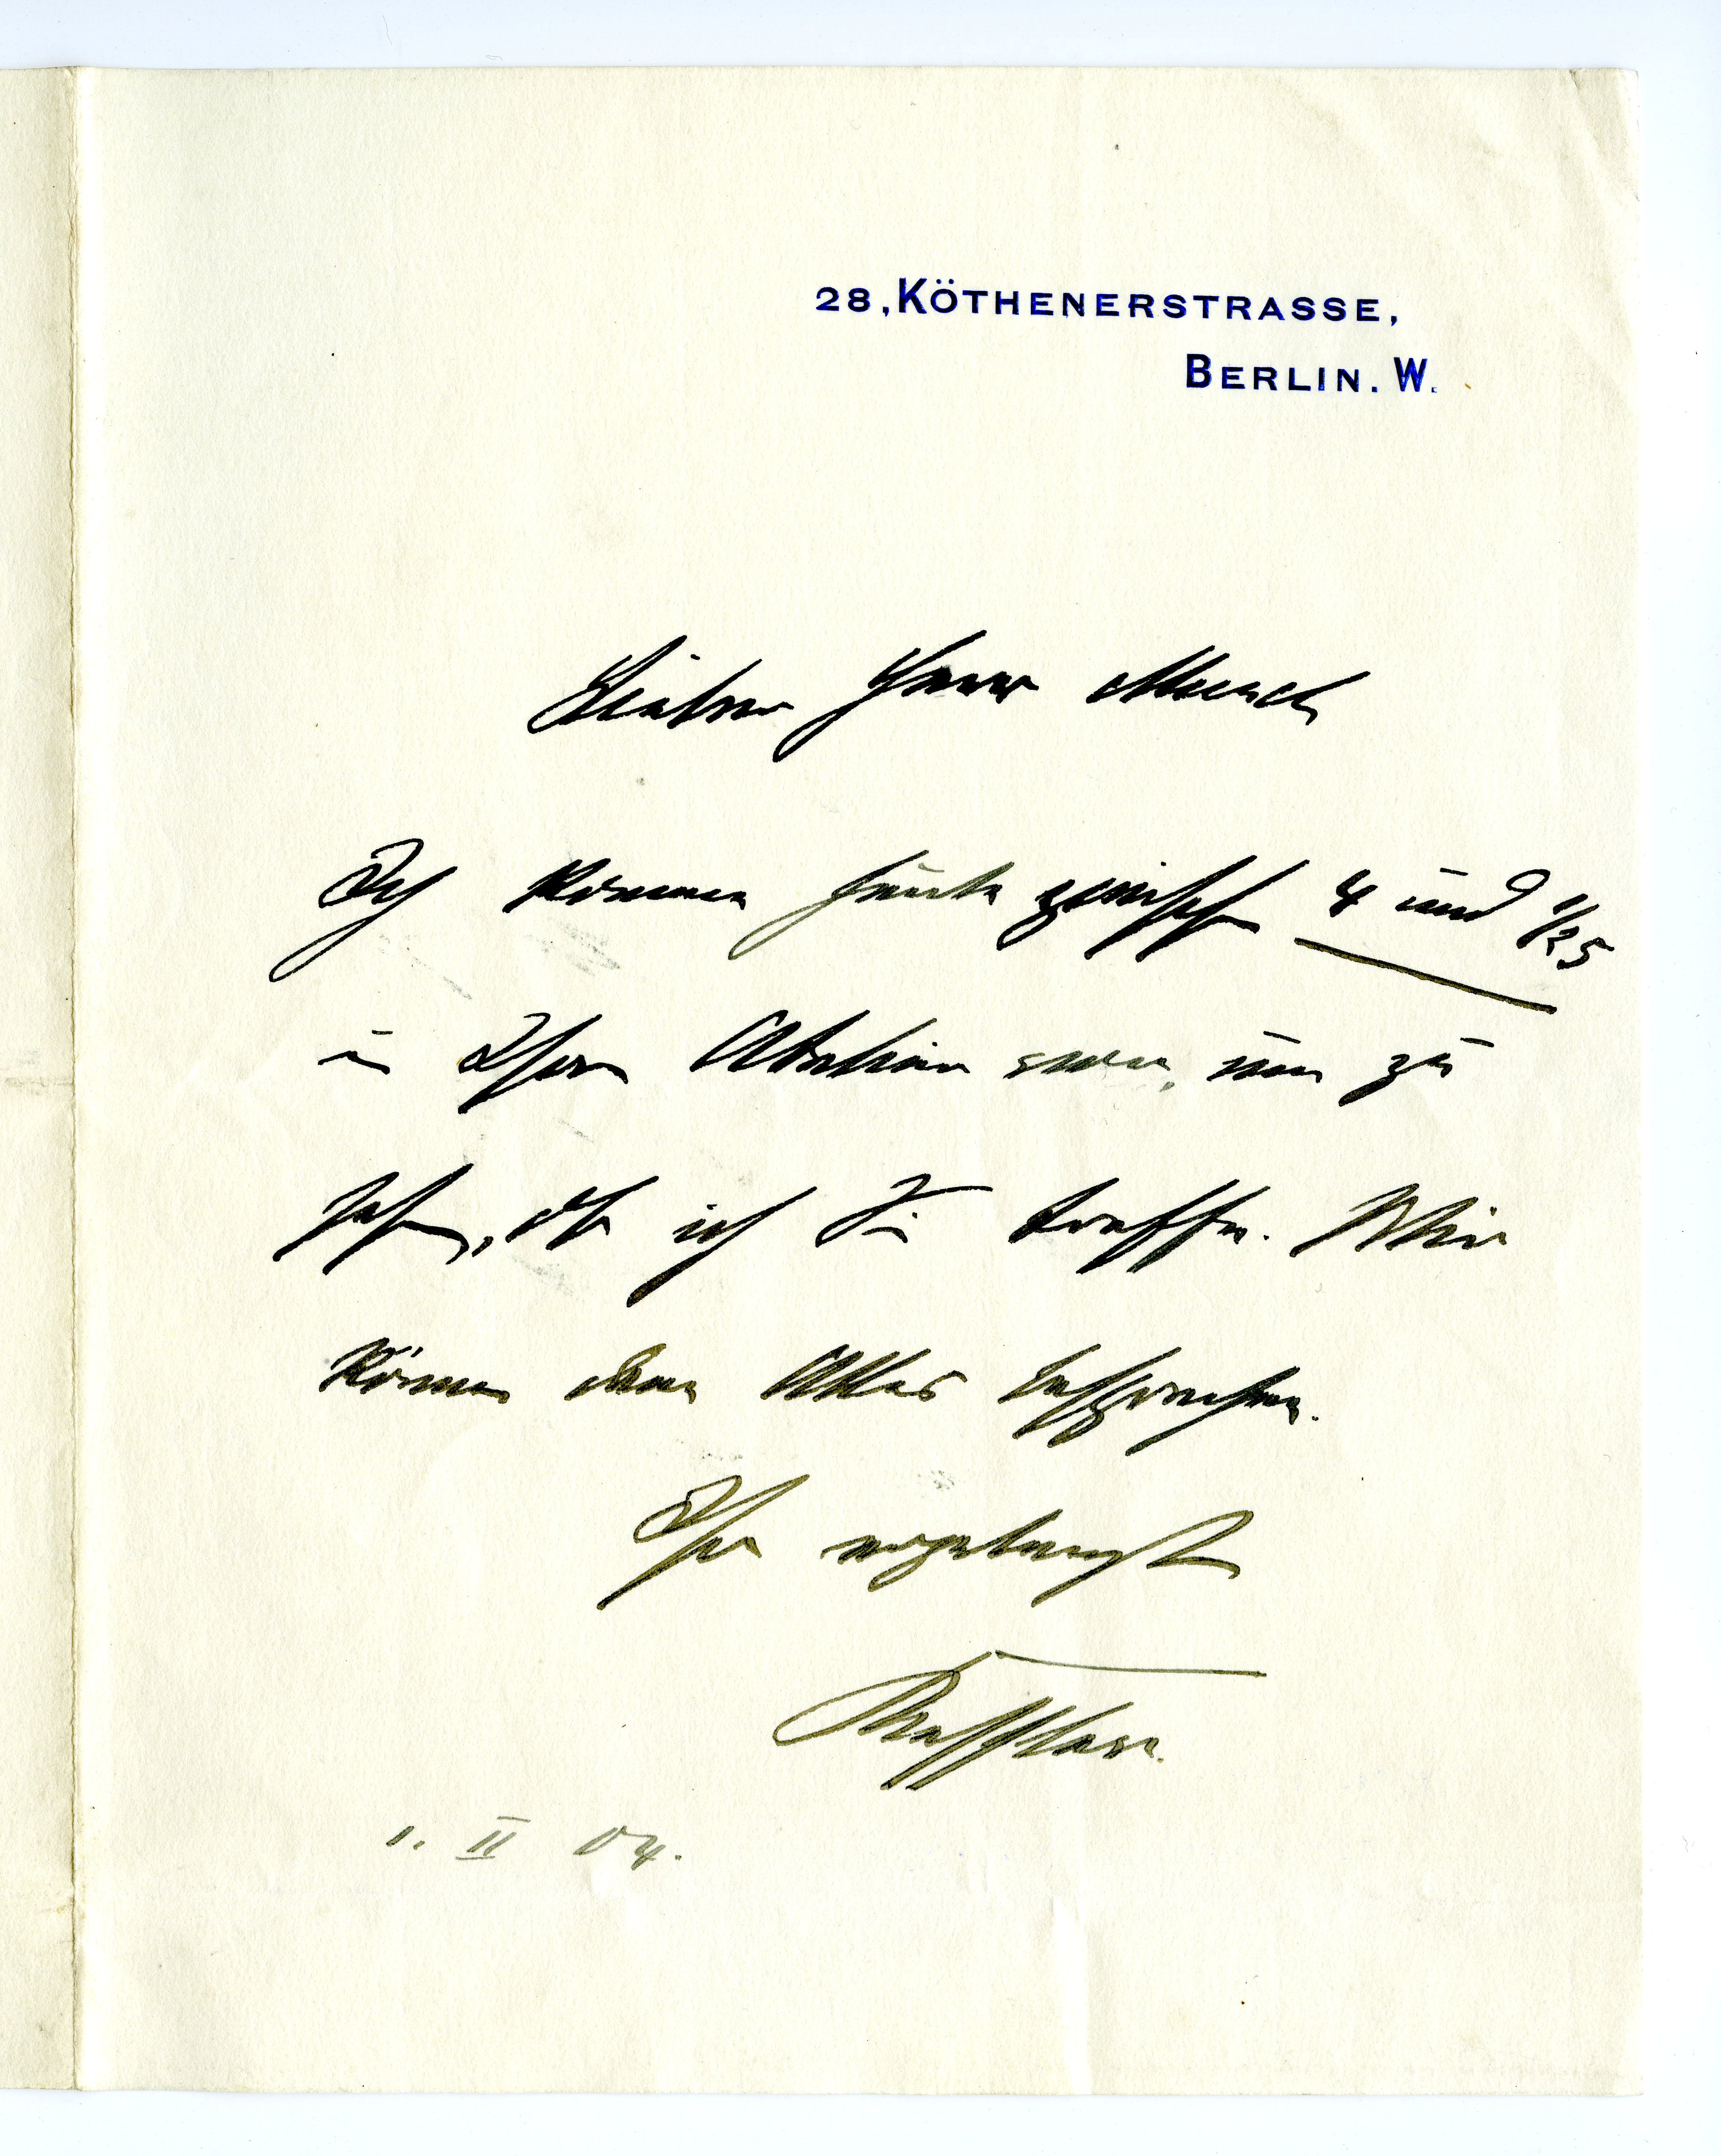 28, KÖTHENERSTRASSE,
BERLIN. W.
Lieber Herr Munch
Ich komme heute zwischen 4 und 1/2 5
in Ihr Atelier um zu
sehen, ob ich Sie treffe. Wir
können dann Alles besprechen.
Ihr ergebenster
Kessler.
1. II 04.